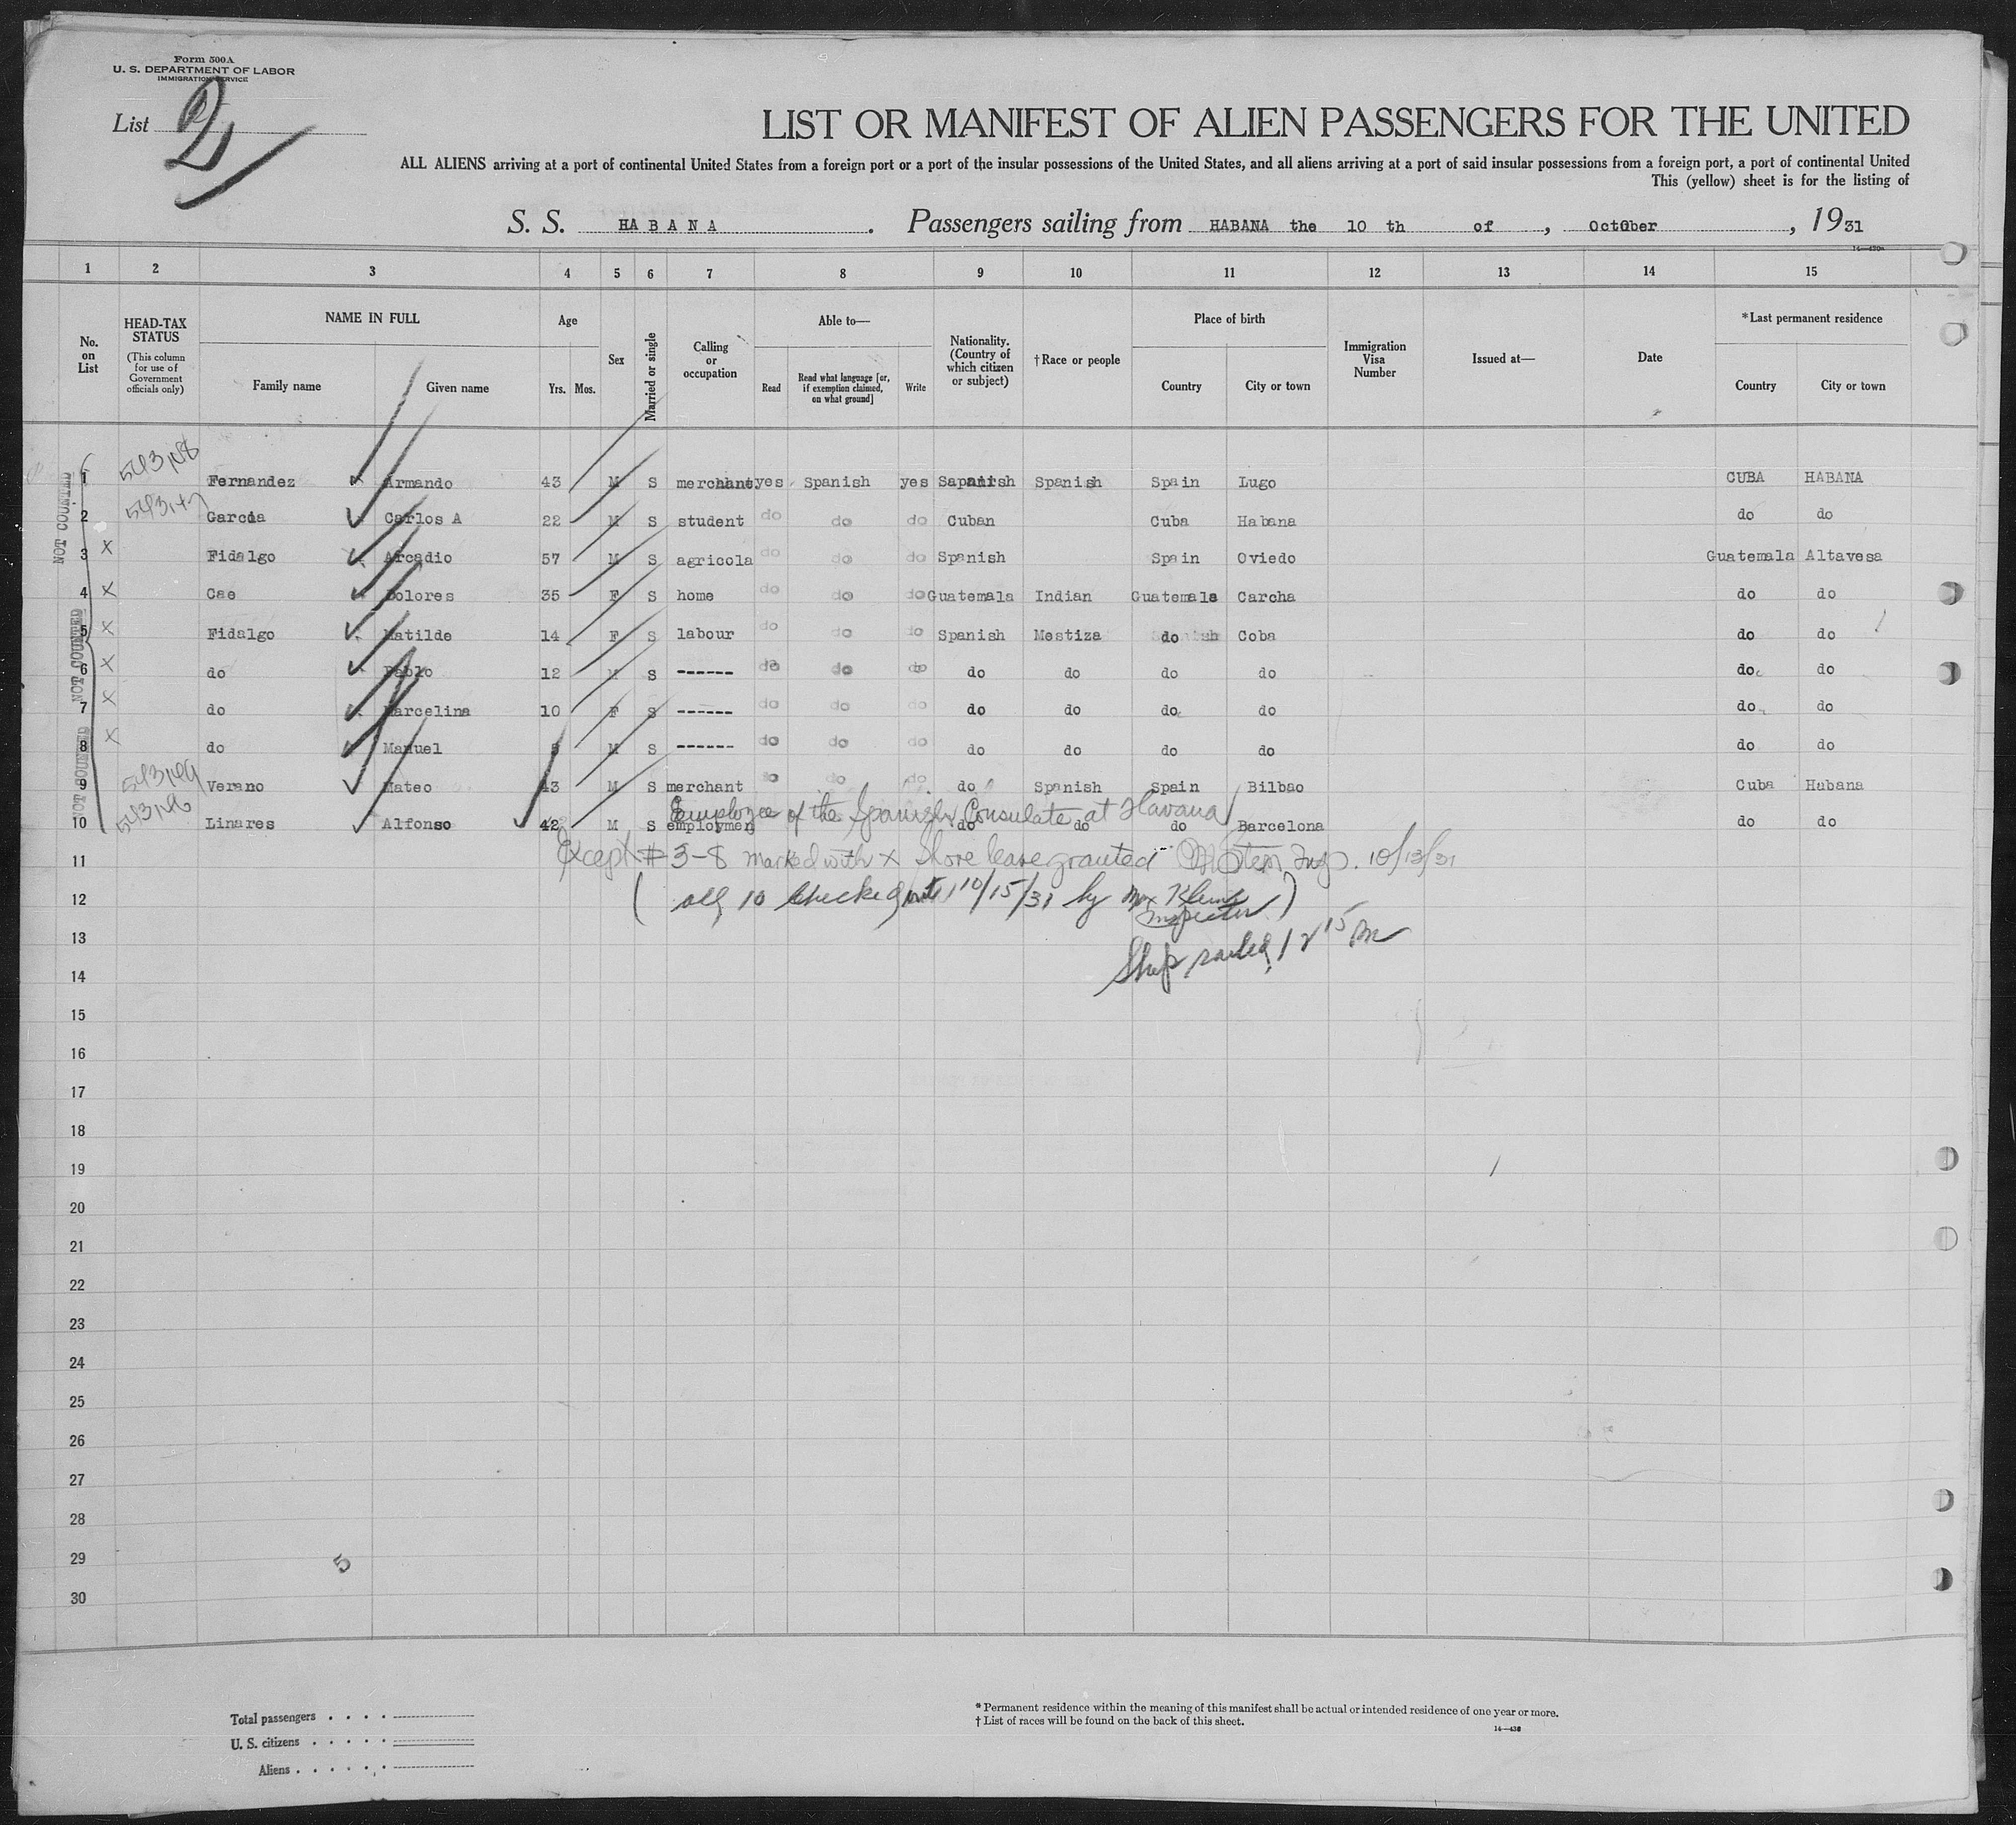 Form 500A
U. S. DEPARTMENT OF LABOR
IMMIGRATION SERVICE
List 2
LIST OR MANIFEST OF ALIEN PASSENGERS FOR THE UNITED
ALL ALIENS arriving at a port of continental United States from a foreign port or a port of the insular possessions of the United States, and all aliens arriving at a port of said insular possessions from a foreign port, a port of continental United
This (yellow) sheet is for the listing of
S. S. HABANA. Passengers sailing from HABANA the 10 th of, October, 1931
1 2 3 4 5 6 7 8 9 10 11 12 13 14 15
No. on List
HEAD-TAX STATUS (This column for use of Government officials only)
NAME IN FULL Family name Given name
Age Yrs. Mos.
Sex
Married or single
Calling or occupation
Able to— Read Read what language [or, if exemption claimed, on what ground] Write
Nationality. (Country of which citizen or subject)
†Race or people
Place of birth Country City or town
Immigration Visa Number
Issued at—
Date
*Last permanent residence Country City or town
NOT COUNTED
NOT COUNTED
NOT COUNTED
1 Fernandez Armando 43 M S merchant yes Spanish yes Spanish Spanish Spain Lugo CUBA HABANA
2 Garcia Carlos A 22 M S student do do do Cuban Cuba Habana do do
3 X Fidalgo Arcadio 57 M S agricola do do do Spanish Spain Oviedo Guatemala Altavesa
4 X Cae Dolores 35 F S home do do do Guatemala Indian Guatemala Carcha do do
5 X Fidalgo Matilde 14 F S labour do do do Spanish Mestiza do Coba do do
6 X do Pablo 12 M S ------ do do do do do do do do do
7 X do Marcelina 10 F S ------ do do do do do do do do do
8 X do Manuel M S ------ do do do do do do do do do
9 Verano Mateo 43 M S merchant do do do do Spanish Spain Bilbao Cuba Hubana
Employee of the Spanish Consulate at Havana
10 Linares Alfonso 42 M S employmen do do do Barcelona do do
11 Except #3-8 marked with X shore leave granted Insp. 10/13/31
12 (all 10 checked out 10/15/31 by Mr Klein Inspector)
13 Ship sailed 12 15 Pm
14
15
16
17
18
19
20
21
22
23
24
25
26
27
28
29 5
30
Total passengers . . . .
U. S. citizens . . . . .
Aliens . . . . . .
* Permanent residence within the meaning of this manifest shall be actual or intended residence of one year or more.
† List of races will be found on the back of this sheet.
14—438